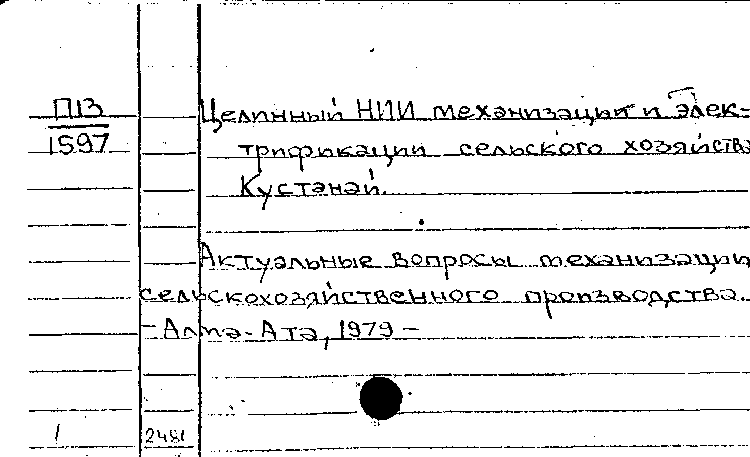 П13
1597
Целинный НИИ механизации и элек-
трификации сельского хозяйства
Кустанай.
Актуальные вопросы механизации
сельскохозяйственного производства.
- Алма-Ата, 1979 -
1
2481